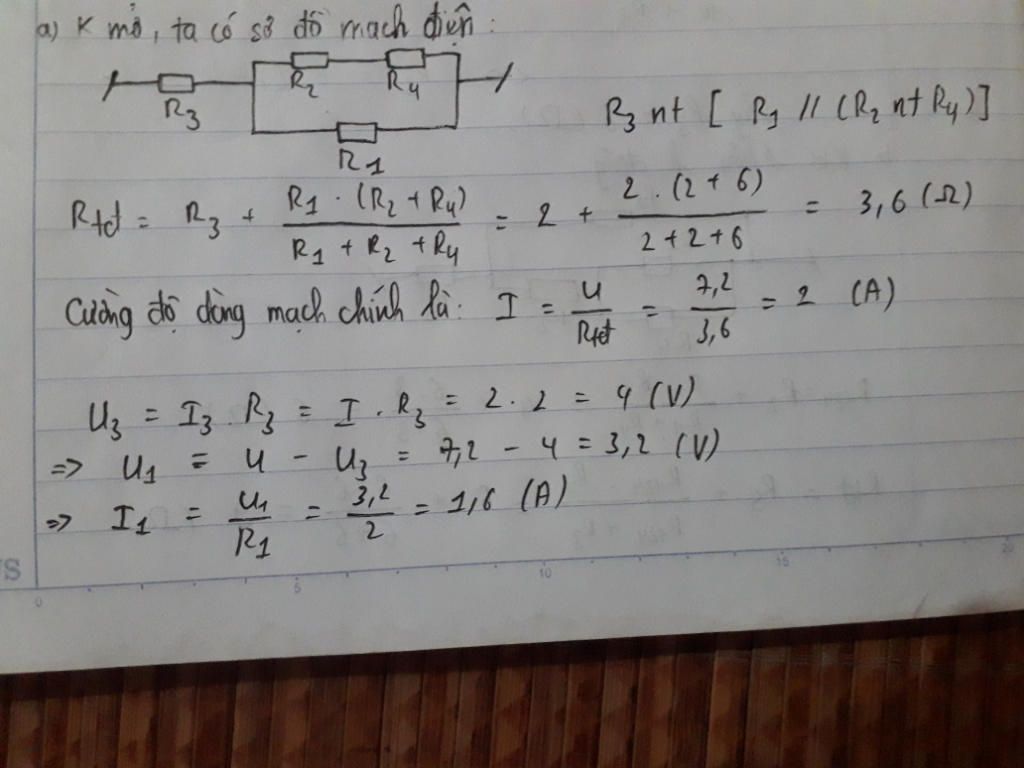 a) K mở, ta có sơ đồ mạch điện:
R3 R2 R4
R1
R3 nt [ R1 // (R2 nt R4)]
Rtđ = R3 + R1 . (R2 + R4) / R1 + R2 + R4 = 2 + 2 . (2 + 6) / 2 + 2 + 6 = 3,6 (Ω)
Cường độ dòng mạch chính là: I = U / Rtđ = 7,2 / 3,6 = 2 (A)
U3 = I3 . R3 = I . R3 = 2 . 2 = 4 (V)
=> U1 = U - U3 = 7,2 - 4 = 3,2 (V)
=> I1 = U1 / R1 = 3,2 / 2 = 1,6 (A)
0 5 10 15 20